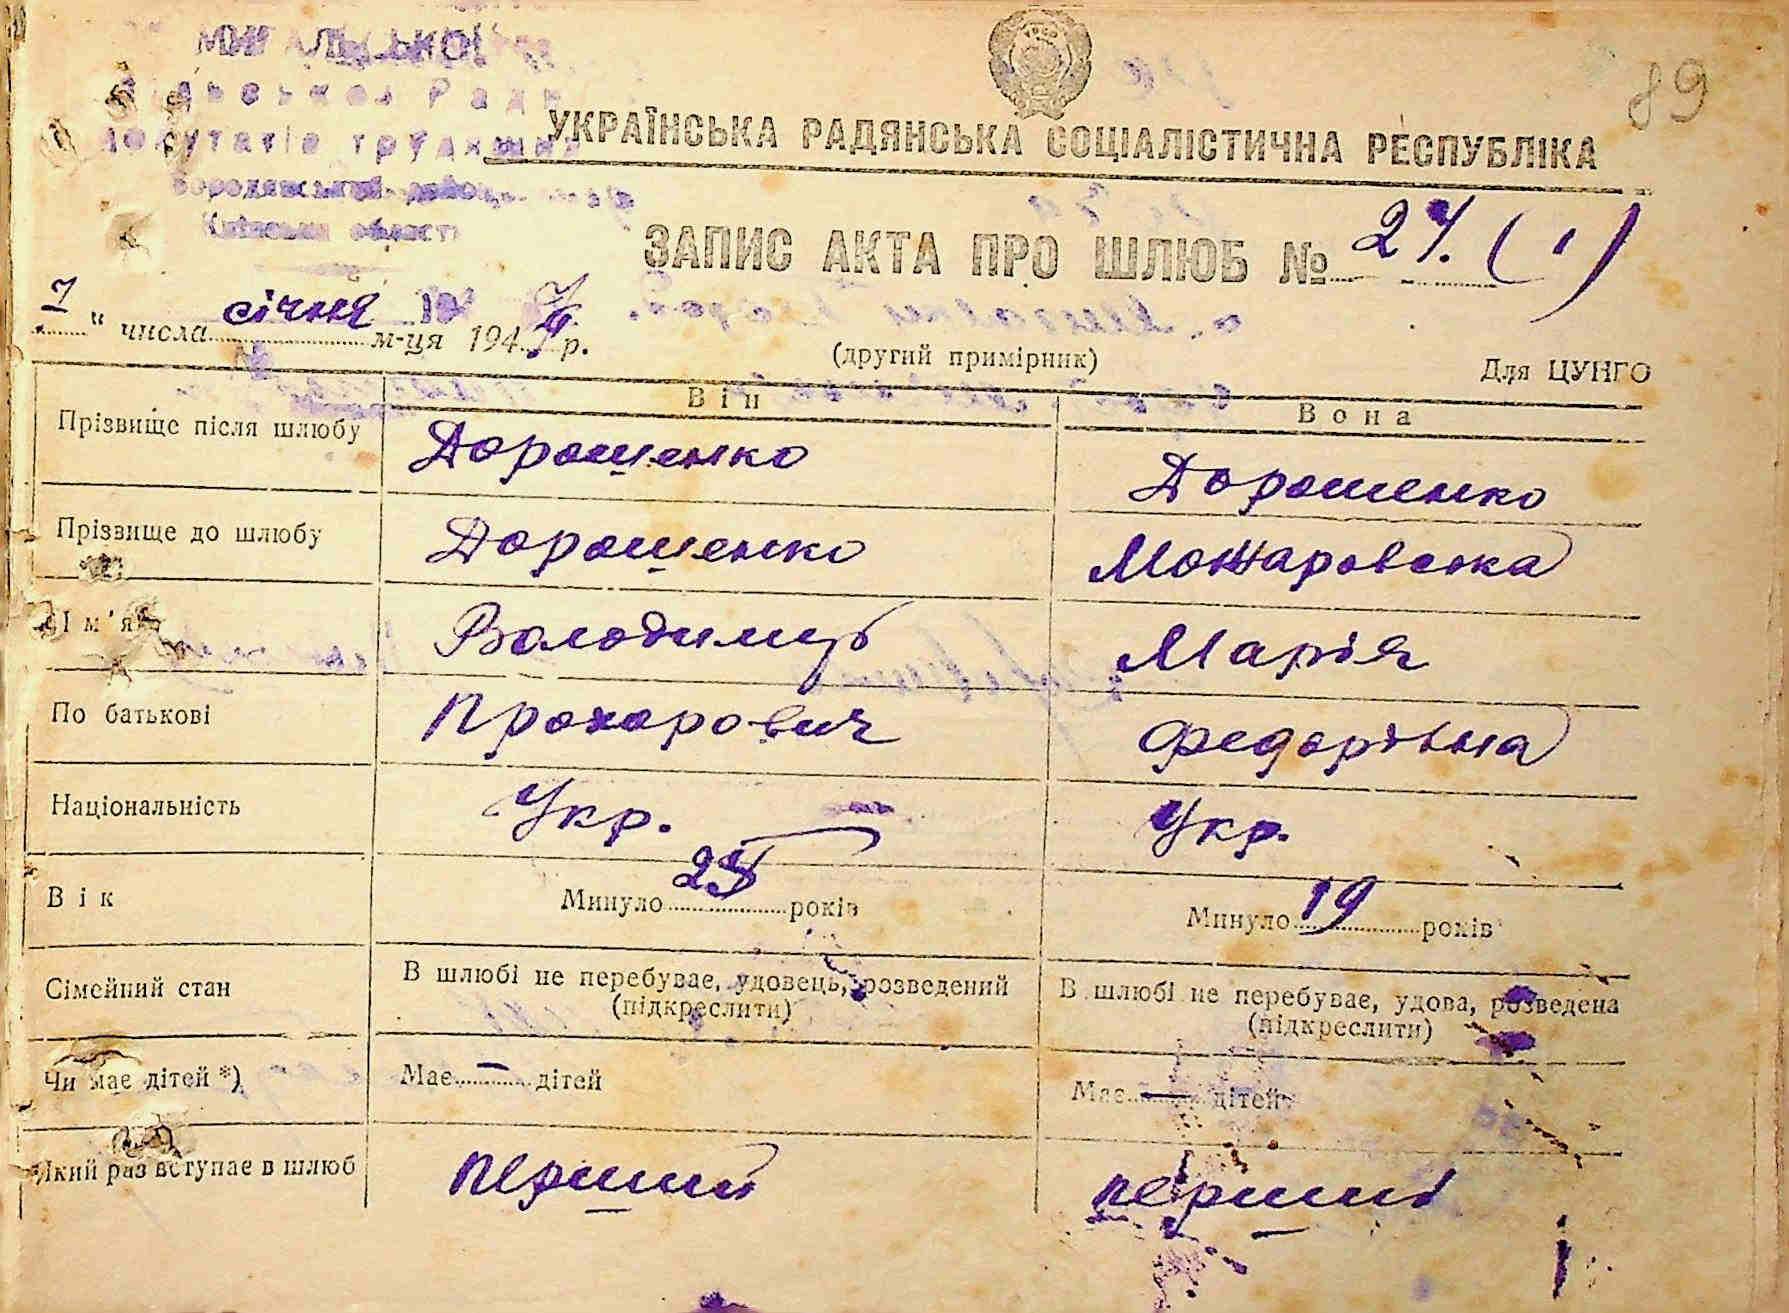 МИГАЛЬСЬКОЇ
Сільської Ради
депутатів трудящих
Бородянський район
Київська област
89
УКРАЇНСЬКА РАДЯНСЬКА СОЦІАЛІСТИЧНА РЕСПУБЛІКА
ЗАПИС АКТА ПРО ШЛЮБ № 24. (1)
7 " числа січня м-ця 194 р.
(другий примірник)
Для ЦУНГО
Він Вона
Прізвище після шлюбу Дорошенко Дорошенко
Прізвище до шлюбу ДорошенкоМожаровська
Ім'я Володимир Марія
По батькові Прохорович Федорівна
Національність Укр. Укр.
Вік Минуло 25 років Минуло 19 років
Сімейний стан В шлюбі не перебуває, удовець, розведений (підкреслити) В шлюбі не перебуває, удова, розведена (підкреслити)
Чи має дітей *) Має — дітей Має — дітей
Який раз вступає в шлюб перший перший